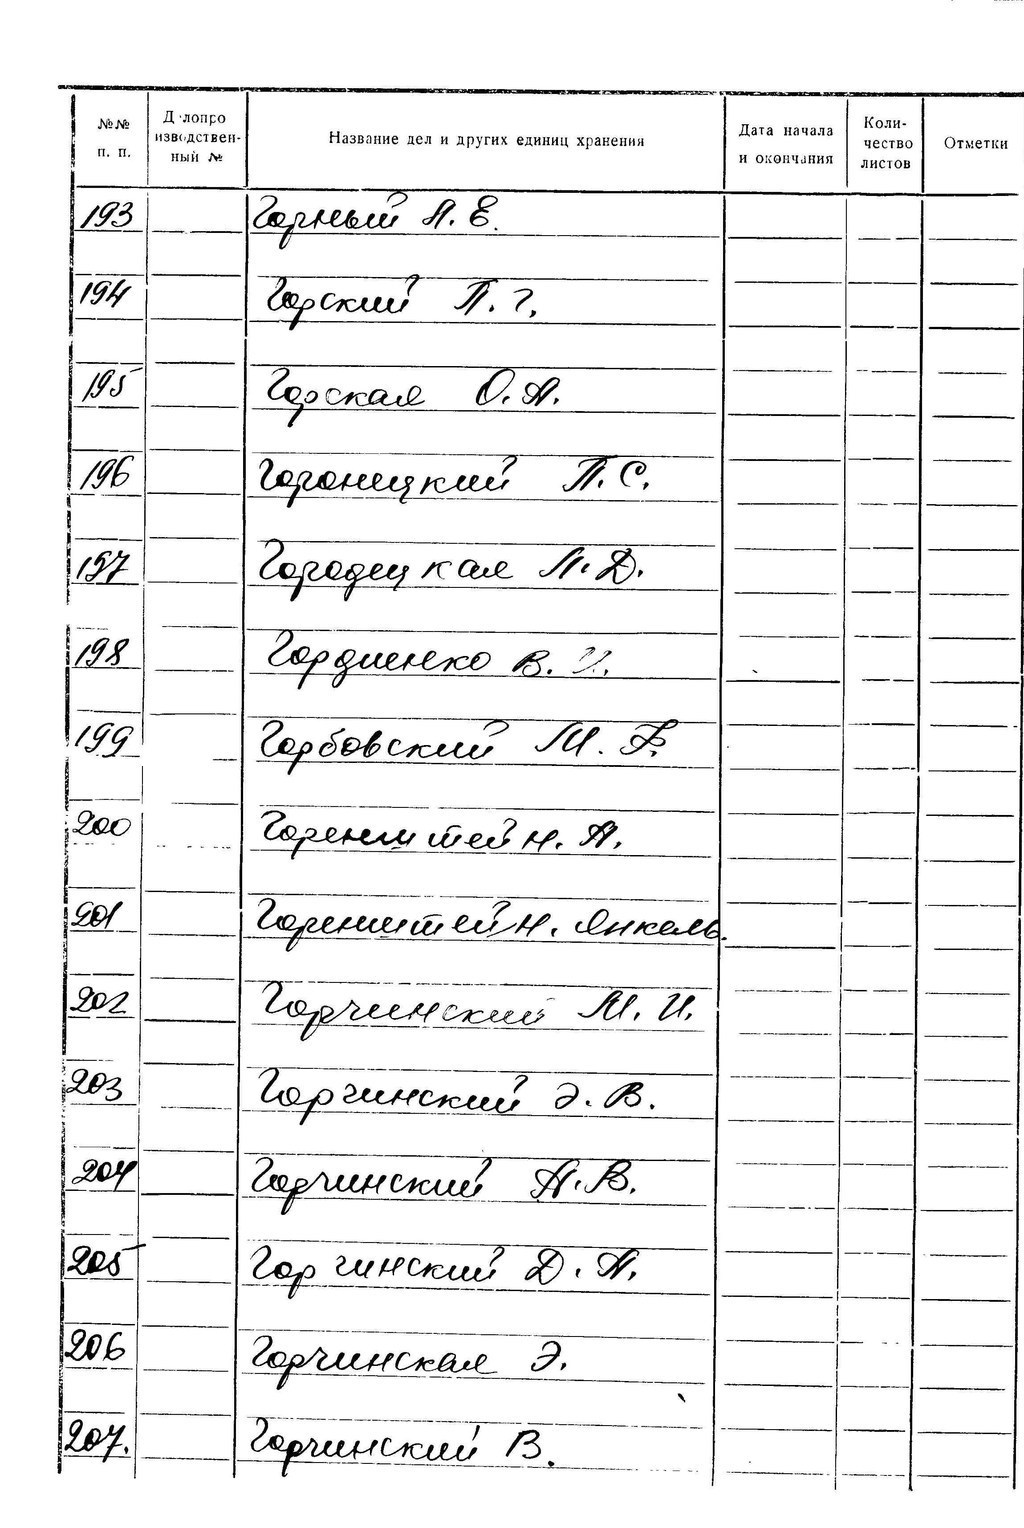 №№ п. п. Делопроизводствен-ный № Название дел и других единиц хранения Дата начала и окончания Коли-чество листов Отметки
193 Горный А. Е.
194 Горский П. Г.
195 Горская О. А.
196 Горонецкий П. С.
197 Городецкая Л. Д.
198 Гордиенко В. И.
199 Горбовский М. Ф.
200 Горенштейн. А.
201 Горенштейн. Янкель.
202 Горчинский М. И.
203 Горчинский Э. В.
204 Горчинский А. В.
205 Горчинский Д. А.
206 Горчинская Э.
207. Горчинский В.